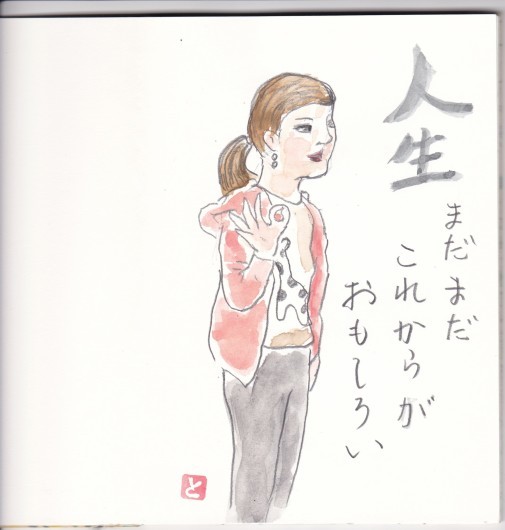 人生
まだまだ
これからが
おもしろい
と